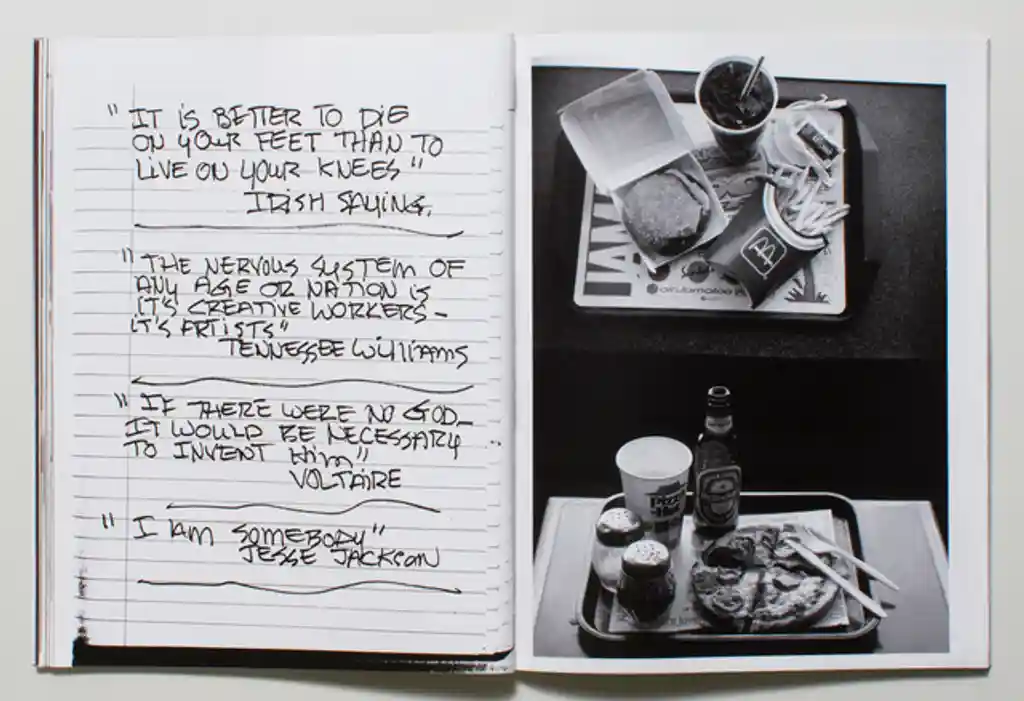 " IT IS BETTER TO DIE
ON YOUR FEET THAN TO
LIVE ON YOUR KNEES "
IRISH SAYING.
" THE NERVOUS SYSTEM OF
ANY AGE OR NATION IS
IT'S CREATIVE WORKERS –
IT'S ARTISTS "
TENNESSEE WILLIAMS
" IF THERE WERE NO GOD_
IT WOULD BE NECESSARY
TO INVENT Him "
VOLTAIRE
" I AM SOMEBODY "
JESSE JACKSON
Pizza
Hut